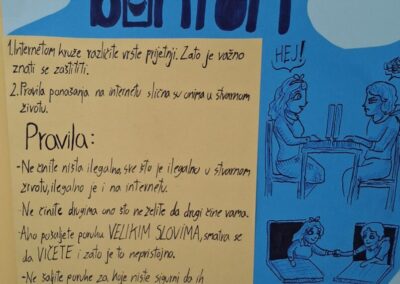 BONTON
1. Internetom kruže različite vrste prijetnji. Zato je važno
znati se zaštititi.
2. Pravila ponašanja na internetu slična su onima u stvarnom
životu.
Pravila:
- Ne činite ništa ilegalno, sve što je ilegalno u stvarnom
životu, ilegalno je i na internetu.
- Ne činite drugima ono što ne želite da drugi čine vama.
- Ako pošaljete poruku VELIKIM SLOVIMA, smatra se
da VIČETE i zato je to nepristojno.
- Ne šaljite poruke za koje niste sigurni da ih
HEJ!